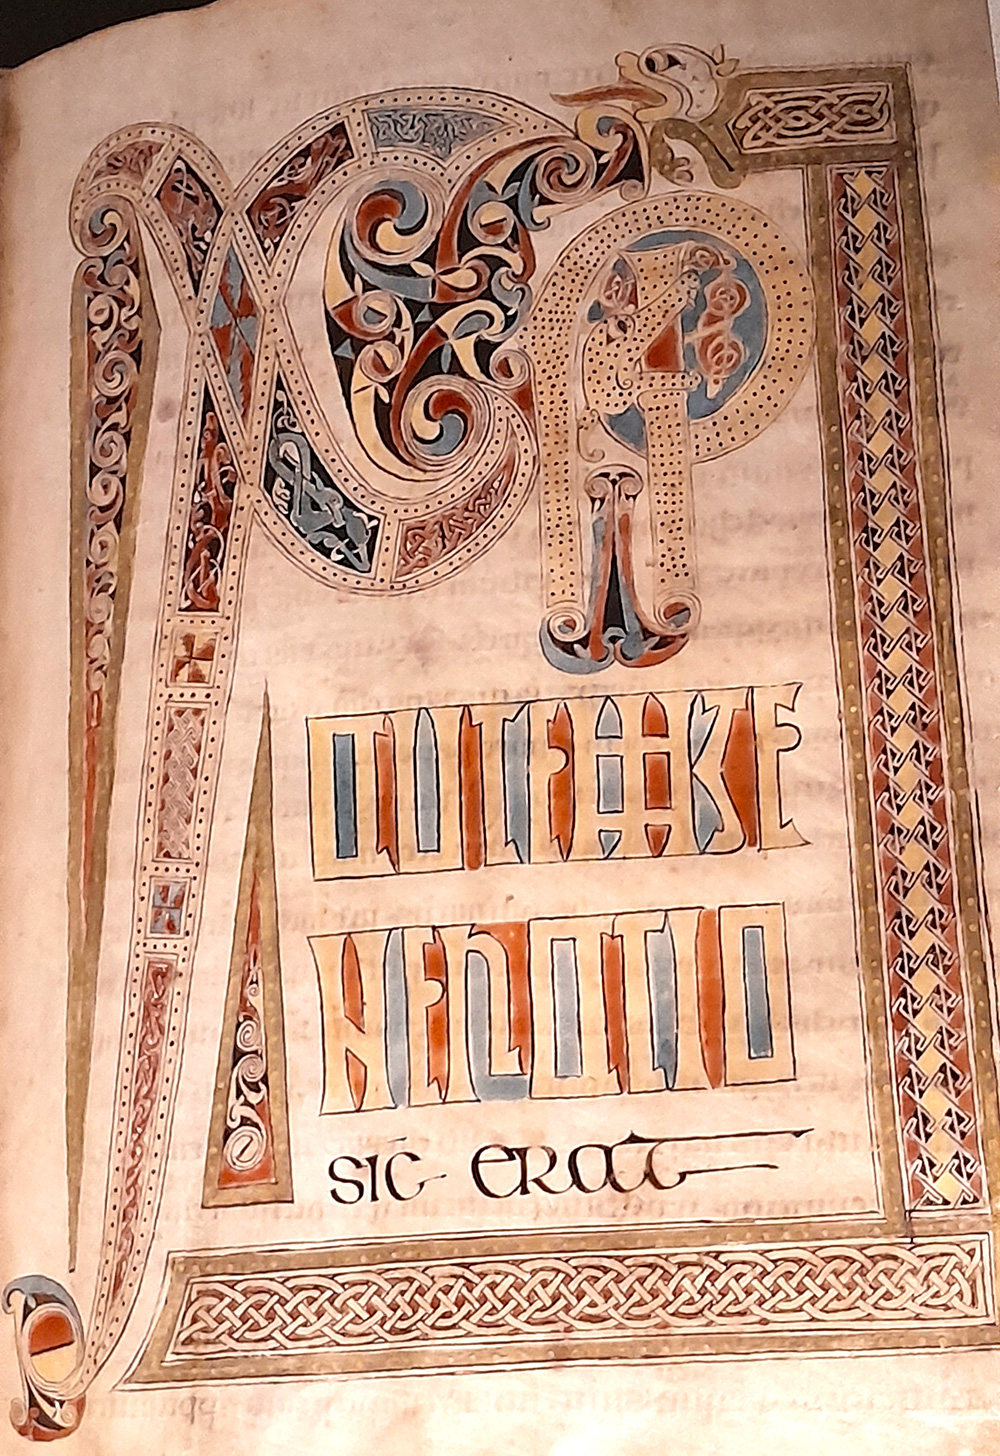 XPI
AUTEM GE
NERATIO
SIC ERAT